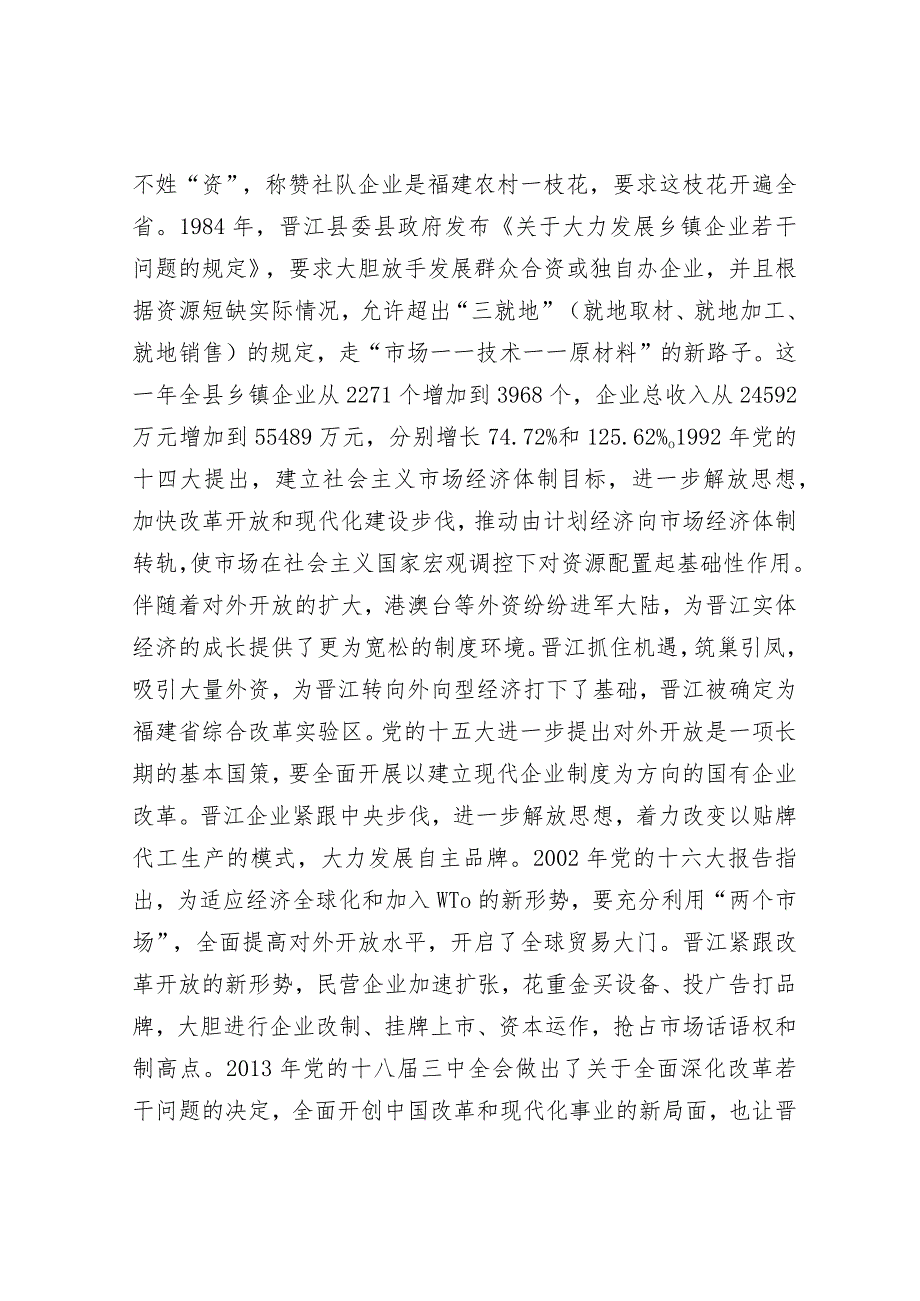 不姓“资”，称赞社队企业是福建农村一枝花，要求这枝花开遍全
省。1984 年，晋江县委县政府发布《关于大力发展乡镇企业若干
问题的规定》，要求大胆放手发展群众合资或独自办企业，并且根
据资源短缺实际情况，允许超出“三就地”（就地取材、就地加工、
就地销售）的规定，走“市场一一技术一一原材料”的新路子。这
一年全县乡镇企业从 2271 个增加到 3968 个，企业总收入从 24592
万元增加到 55489 万元，分别增长 74.72%和 125.62%o1992 年党的
十四大提出，建立社会主义市场经济体制目标，进一步解放思想，
加快改革开放和现代化建设步伐，推动由计划经济向市场经济体制
转轨，使市场在社会主义国家宏观调控下对资源配置起基础性作用。
伴随着对外开放的扩大，港澳台等外资纷纷进军大陆，为晋江实体
经济的成长提供了更为宽松的制度环境。晋江抓住机遇，筑巢引凤，
吸引大量外资，为晋江转向外向型经济打下了基础，晋江被确定为
福建省综合改革实验区。党的十五大进一步提出对外开放是一项长
期的基本国策，要全面开展以建立现代企业制度为方向的国有企业
改革。晋江企业紧跟中央步伐，进一步解放思想，着力改变以贴牌
代工生产的模式，大力发展自主品牌。2002 年党的十六大报告指
出，为适应经济全球化和加入 WTo 的新形势，要充分利用“两个市
场”，全面提高对外开放水平，开启了全球贸易大门。晋江紧跟改
革开放的新形势，民营企业加速扩张，花重金买设备、投广告打品
牌，大胆进行企业改制、挂牌上市、资本运作，抢占市场话语权和
制高点。2013 年党的十八届三中全会做出了关于全面深化改革若
干问题的决定，全面开创中国改革和现代化事业的新局面，也让晋